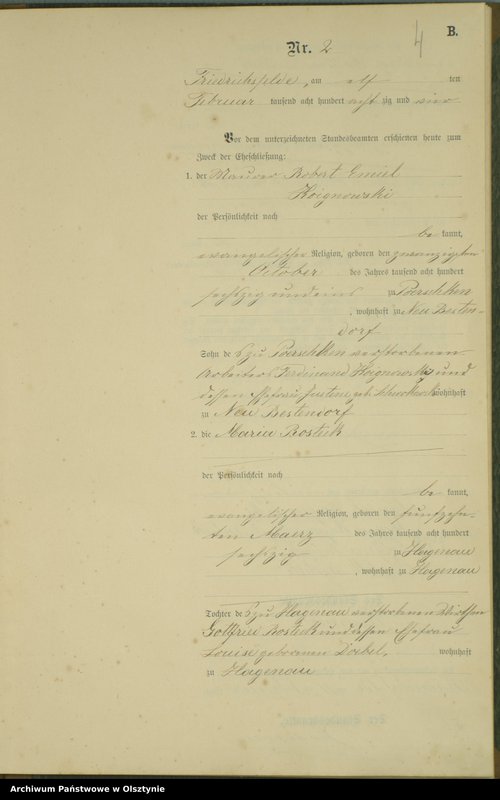 4
B.
Nr. 2
Friedrichsfelde, am elf ten
Februar tausend acht hundert acht zig und vier
Vor dem unterzeichneten Standesbeamten erschienen heute zum
Zweck der Eheschließung:
1. der Maurer Robert Emiel
Hoignowski
der Persönlichkeit nach
be kannt,
evangelischer Religion, geboren den zwanzigsten
October des Jahres tausend acht hundert
sechszig und eins zu Poerschken
, wohnhaft zu Neu Besten-
dorf
Sohn des zu Poerschken verstorbenen
Arbeiters Ferdinand Hoignowski und
dessen Ehefrau Justine geb. wohnhaft
zu Neu Bestendorf
2. die Maria Rostek
der Persönlichkeit nach
be kannt,
evangelischer Religion, geboren den fünfzehn-
ten Maerz des Jahres tausend acht hundert
sechszig zu Hagenau
, wohnhaft zu Hagenau
Tochter des zu Hagenau verstorbenen Wirthen
Gottfried Rostek und dessen Ehefrau
Louise geborenen Doebel, wohnhaft
zu Hagenau
Archiwum Państwowe w Olsztynie